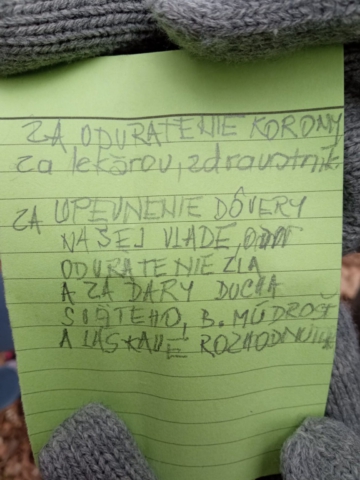 ZA ODVRATENIE KORONY
Za lekárov, zdravotník
ZA UPEVNENIE DÔVERY
NAŠEJ VLÁDE,
ODVRATENIE ZLA
A ZA DARY DUCHA
SVÄTÉHO, B. MÚDROSŤ
A LÁSKAVÉ